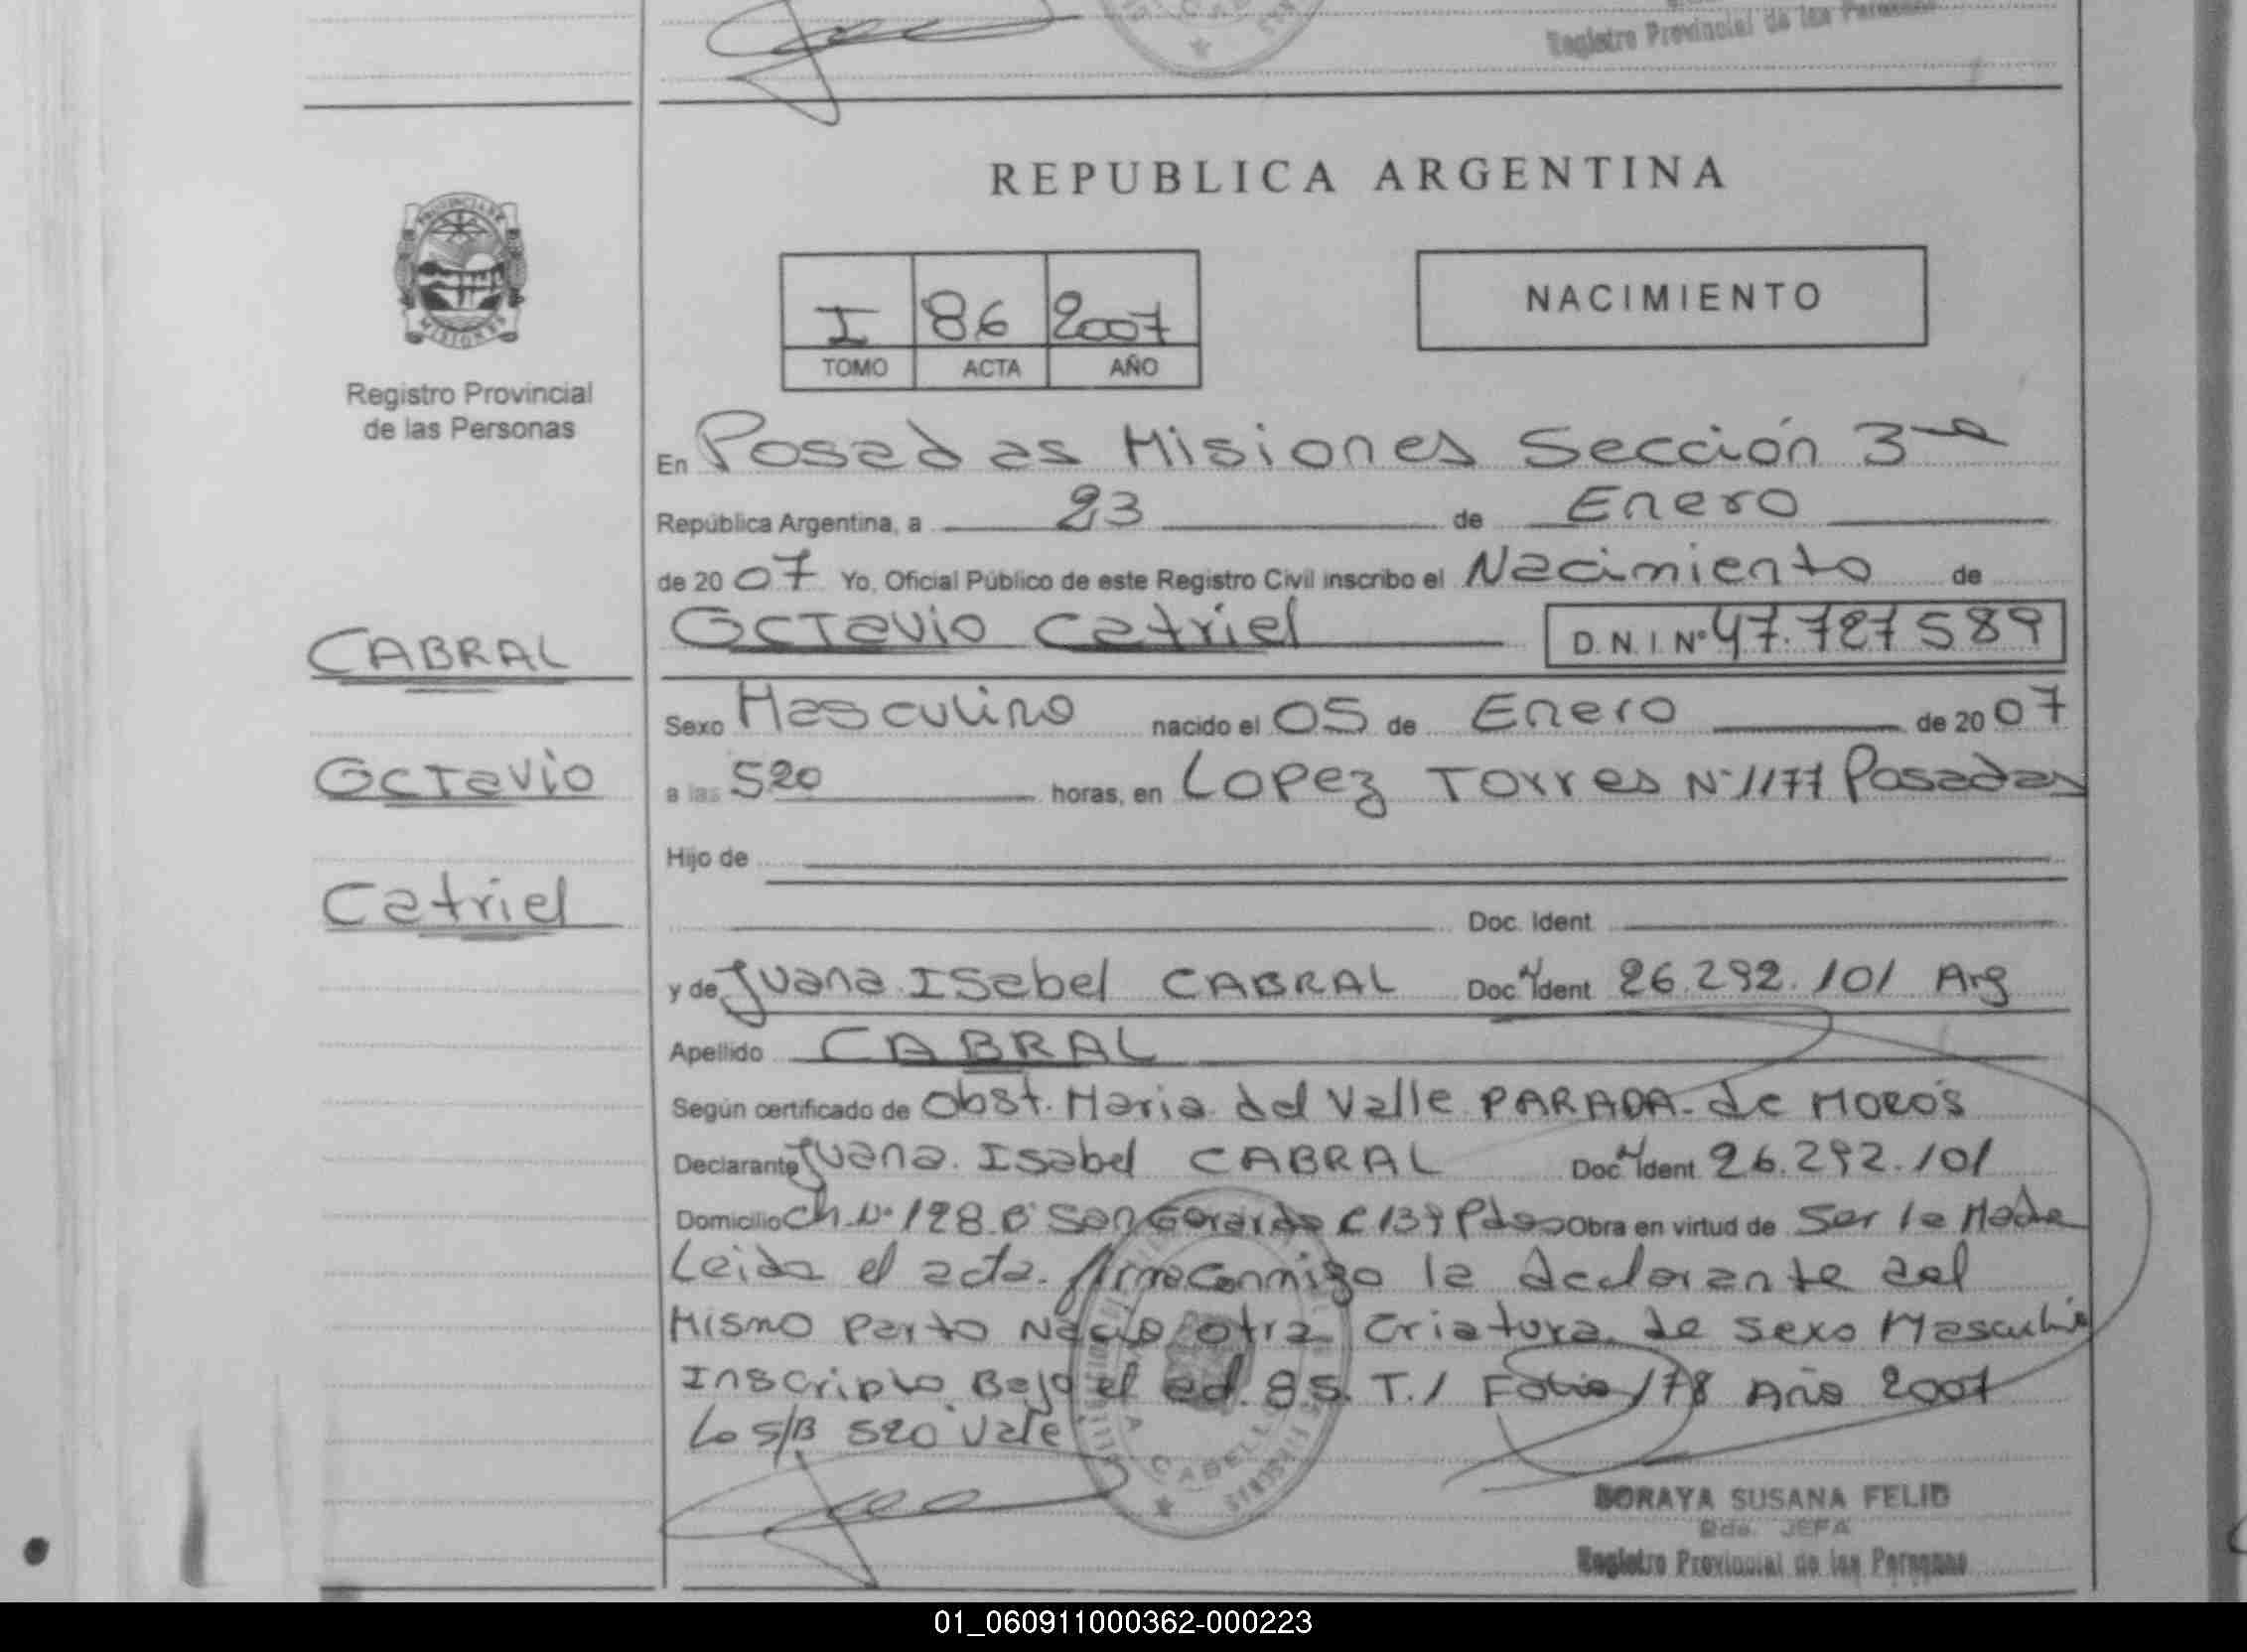 Registro Provincial de las Personas
REPUBLICA ARGENTINA
PROVINCIA DE
MISIONES
Registro Provincial
de las Personas
I 86 2007
TOMO ACTA AÑO
NACIMIENTO
En Posadas Misiones Sección 3ra
República Argentina, a 23 de Enero
de 2007 Yo, Oficial Público de este Registro Civil inscribo el Nacimiento de
Octavio Catriel D.N.I Nº 47.787589
CABRAL
Octavio
Catriel
Sexo Masculino nacido el 05 de Enero de 2007
a las 520 horas, en Lopez Torres Nº 1177 Posadas
Hijo de
Doc. Ident
y de Juana Isabel CABRAL Doc N Ident 26.292.101 Arg
Apellido CABRAL
Según certificado de Obst. Maria del Valle PARADA de MOROS
Declarante Juana Isabel CABRAL Doc N Ident 26.292.101
Domicilio Ch. Nº 128 Bº San Gerardo C 139 Pdas Obra en virtud de Ser la Madre
Leida el acta. firma Conmigo la declarante del
Mismo Parto Nacio otra Criatura de sexo Masculino
Inscripto Bajo el 85. T. 1 Folio 178 Año 2007
Lo S/B 520 Vale
SORAYA SUSANA FELIB
JEFA
Registro Provincial de las Personas
01_060911000362-000223